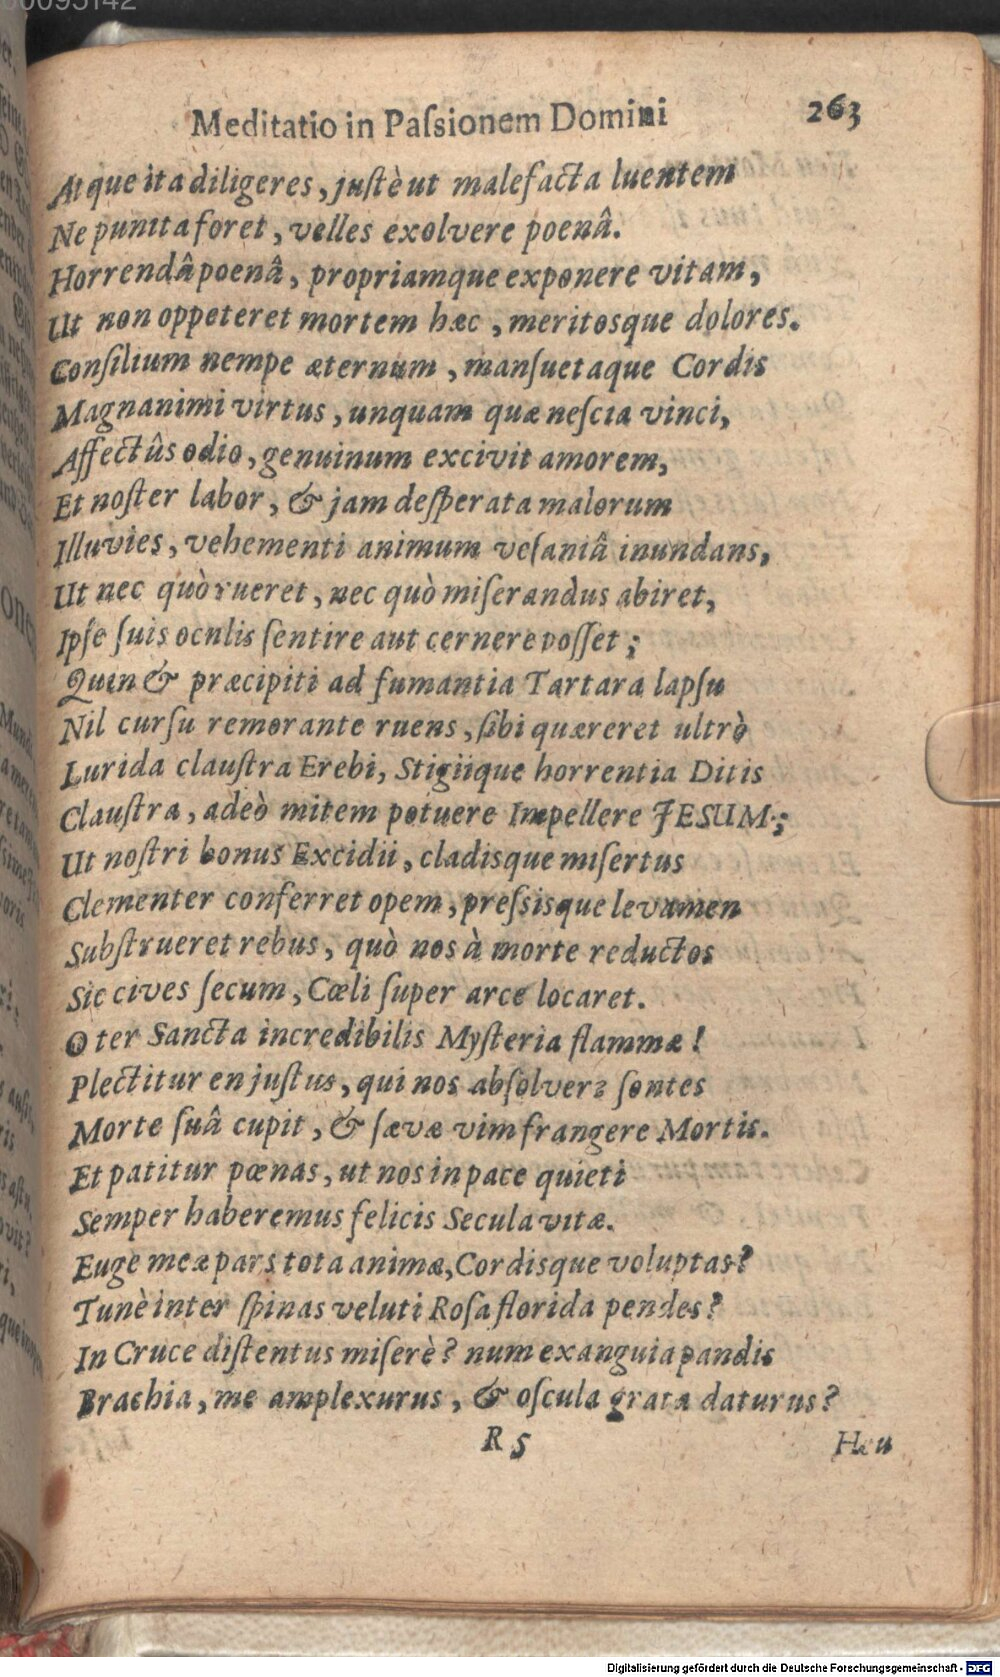 Meditatio in Paſsionem Domini 263
Atque ita diligeres, juſtè ut malefacta luentem
Ne punita foret, velles exolvere poenâ.
Horrendâ poenâ, propriamque exponere vitam,
Ut non oppeteret mortem hæc, meritosque dolores.
Conſilium nempe æternum, manſuetaque Cordis
Magnanimi virtus, unquam quæ neſcia vinci,
Affectûs odio, genuinum excivit amorem,
Et noſter labor, & jam deſperata malorum
Illuvies, vehementi animum veſaniâ inundans,
Ut nec quò rueret, nec quò miſerandus abiret,
Ipſe ſuis oculis ſentire aut cernere poſſet;
Quin & præcipiti ad fumantia Tartara lapſu
Nil curſu remorante ruens, ſibi quæreret ultrò
Lurida clauſtra Erebi, Stigiique horrentia Ditis
Clauſtra, adeò mitem potuere Impellere JESUM;
Ut noſtri bonus Excidii, cladisque miſertus
Clementer conferret opem, preſsisque levamen
Subſtrueret rebus, quò nos à morte reductos
Sic cives ſecum, Cœli ſuper arce locaret.
O ter Sancta incredibilis Myſteria flammæ!
Plectitur en juſtus, qui nos abſolvere ſontes
Morte ſuâ cupit, & ſævæ vim frangere Mortis.
Et patitur pœnas, ut nos in pace quieti
Semper haberemus felicis Secula vitæ.
Euge meæ pars tota animæ, Cordisque voluptas?
Tunè inter ſpinas veluti Roſa florida pendes?
In Cruce diſtentus miſerè? num exanguia pandis
Brachia, me amplexurus, & oſcula grata daturus?
R 5 Heu
Digitalisierung gefördert durch die Deutsche Forschungsgemeinschaft - DFG